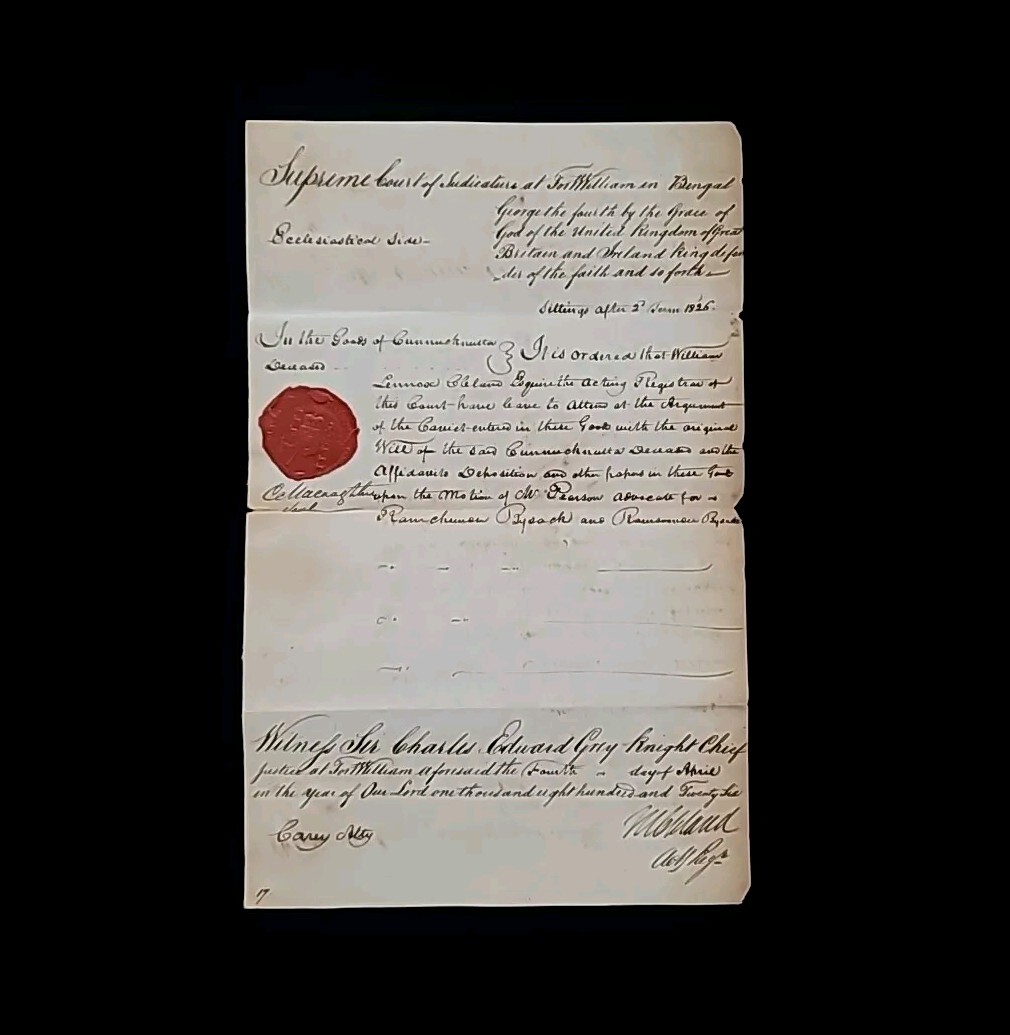 Supreme Court of Judicature at Fort William in Bengal
George the fourth by the Grace of
God of the United Kingdom of Great
Ecclesiastical Side
Britain and Ireland King defen
der of the faith and so forth
Sittings after 2d Term 1826.
In the Goods of Cunnucknutta
Deceased
It is ordered that William
Lennox Cleland Esquire the acting Registrar of
this Court have leave to attend at the Argument
of the Caveat entered in these Goods with the original
Will of the said Cunnucknutta Deceased and the
Affidavits Deposition and other papers in these Goods
upon the Motion of Mr Pearson advocate for
Ramchunder Bysack and Bysack
Seal
Witness Sir Charles Edward Grey Knight Chief
Justice at Fort William aforesaid the Fourth day of April
in the year of Our Lord one thousand eight hundred and Twenty Six
Carey Atty
WLCleland
Actg Regr
7